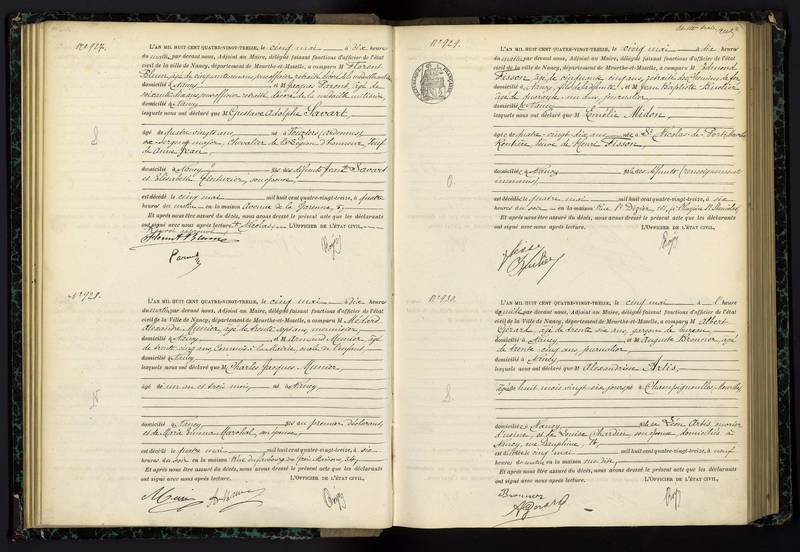 N° 927.
L'AN MIL HUIT CENT QUATRE-VINGT-TREIZE, le cinq mai à dix heures
du matin par devant nous, Adjoint au Maire, délégué faisant fonctions d'officier de l'état
civil de la Ville de Nancy, département de Meurthe-et-Moselle, a comparu M Florent
Blum, âgé de cinquante ans, sous officier retraité, décoré de la médaille militaire
domicilié à Nancy et M Jacques Parent, âgé de
sous officier retraité, décoré de la médaille militaire,
domicilié à Nancy
lesquels nous ont déclaré que M Gustave Adolphe Savart,
âgé de quatre vingt ans né à Vouziers, Ardennes
ex Sergent major, Chevalier de la Légion d'honneur, Veuf
de Anne Jean,
domicilié à Nancy fils des défunts Jean Savart
et Elisabeth, son épouse,
est décédé le cinq mai mil huit cent quatre-vingt-treize, à quatre
heures du matin en la maison Avenue de la Garenne, 5,
Et après nous être assuré du décès, nous avons dressé le présent acte que les déclarants
ont signé avec nous après lecture L'OFFICIER DE L'ÉTAT CIVIL,
Parent
N° 928.
L'AN MIL HUIT CENT QUATRE-VINGT-TREIZE, le cinq mai à dix heures
du matin par devant nous, Adjoint au Maire, délégué faisant fonctions d'officier de l'état
civil de la Ville de Nancy, département de Meurthe-et-Moselle, a comparu M Médard
Alexandre Munier, âgé de trente sept ans, menuisier
domicilié à Nancy et M Armand Munier, âgé
de trente cinq ans, Commis à la Mairie, oncle de l'enfant
domicilié à Nancy
lesquels nous ont déclaré que M Charles Jacques Munier,
âgé de un an et trois mois, né à Nancy
domicilié à Nancy fils du premier déclarant
et de Marie Emma Marchal, son épouse,
est décédé le quatre mai mil huit cent quatre-vingt-treize, à six
heures du soir en la maison Rue du faubourg des Trois Maisons,
Et après nous être assuré du décès, nous avons dressé le présent acte que les déclarants
ont signé avec nous après lecture. L'OFFICIER DE L'ÉTAT CIVIL,
N° 929.
L'AN MIL HUIT CENT QUATRE-VINGT-TREIZE, le cinq mai à dix heures
du matin par devant nous, Adjoint au Maire, délégué faisant fonctions d'officier de l'état
civil de la Ville de Nancy, département de Meurthe-et-Moselle, a comparu M Edmond
Fisson, âgé de cinquante cinq ans,
domicilié à Nancy, fils de la défunte, et M Jean Baptiste
âgé de journalier
domicilié à Nancy
lesquels nous ont déclaré que M Emélie Midon,
âgé de quatre-vingt dix ans née à St Nicolas-de-Port, Meurthe
Rentière, Veuve de Henri Fisson,
domicilié à Nancy fille des défunts (renseignement
inconnu)
est décédé le quatre mai mil huit cent quatre-vingt-treize, à six
heures du soir en la maison Rue St Dizier,
Et après nous être assuré du décès, nous avons dressé le présent acte que les déclarants
ont signé avec nous après lecture. L'OFFICIER DE L'ÉTAT CIVIL,
N° 930.
L'AN MIL HUIT CENT QUATRE-VINGT-TREIZE, le cinq mai à l'heure
de midi par devant nous, Adjoint au Maire, délégué faisant fonctions d'officier de l'état
civil de la Ville de Nancy, département de Meurthe-et-Moselle, a comparu M Albert
Gérard, âgé de trente six ans, garçon de bureau
domicilié à Nancy et M Auguste Bronner, âgé
de trente cinq ans, journalier
domicilié à Nancy
lesquels nous ont déclaré que M Alexandrine Artis,
âgée de huit mois vingt six jours née à Champigneulles, Meurthe
domicilié à Nancy fille de Léon Artis, ouvrier
d'usine, et de Louise Chardin, son épouse domiciliés à
Nancy, rue
est décédée le cinq mai mil huit cent quatre-vingt-treize, à neuf
heures du matin en la maison sus dite,
Et après nous être assuré du décès, nous avons dressé le présent acte que les déclarants
ont signé avec nous après lecture. L'OFFICIER DE L'ÉTAT CIVIL,
Bronner
AGérard